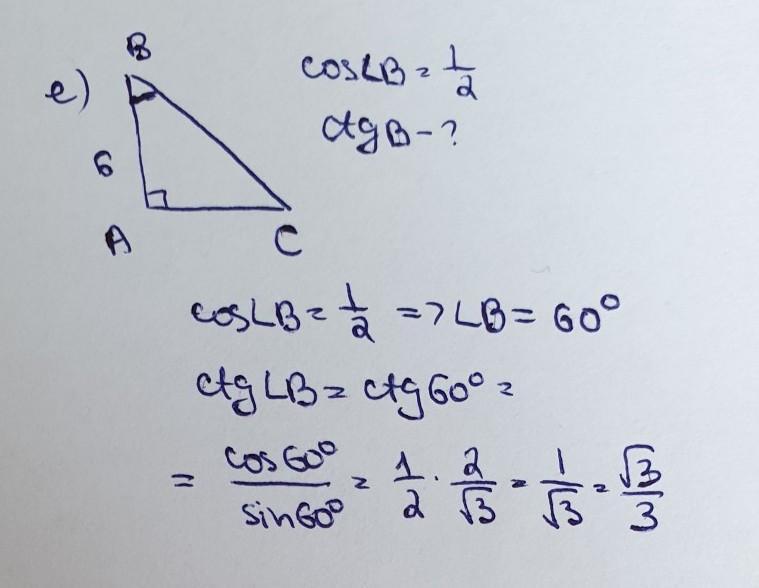 e)
B
6
A
C
cos∠B = 1/2
ctgB - ?
cos∠B = 1/2 => ∠B = 60°
ctg∠B = ctg60° =
= cos60°/sin60° = 1/2 · 2/√3 = 1/√3 = √3/3